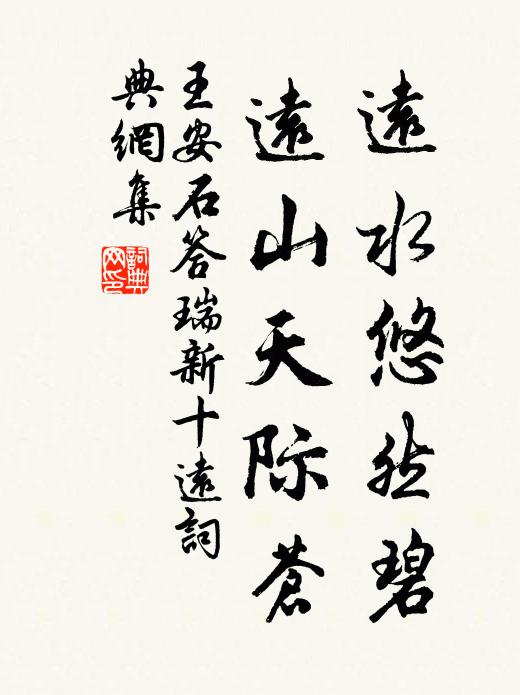 遠水悠然碧
遠山天际蒼
王安石答瑞新十遠詞
典網集
詞典網印